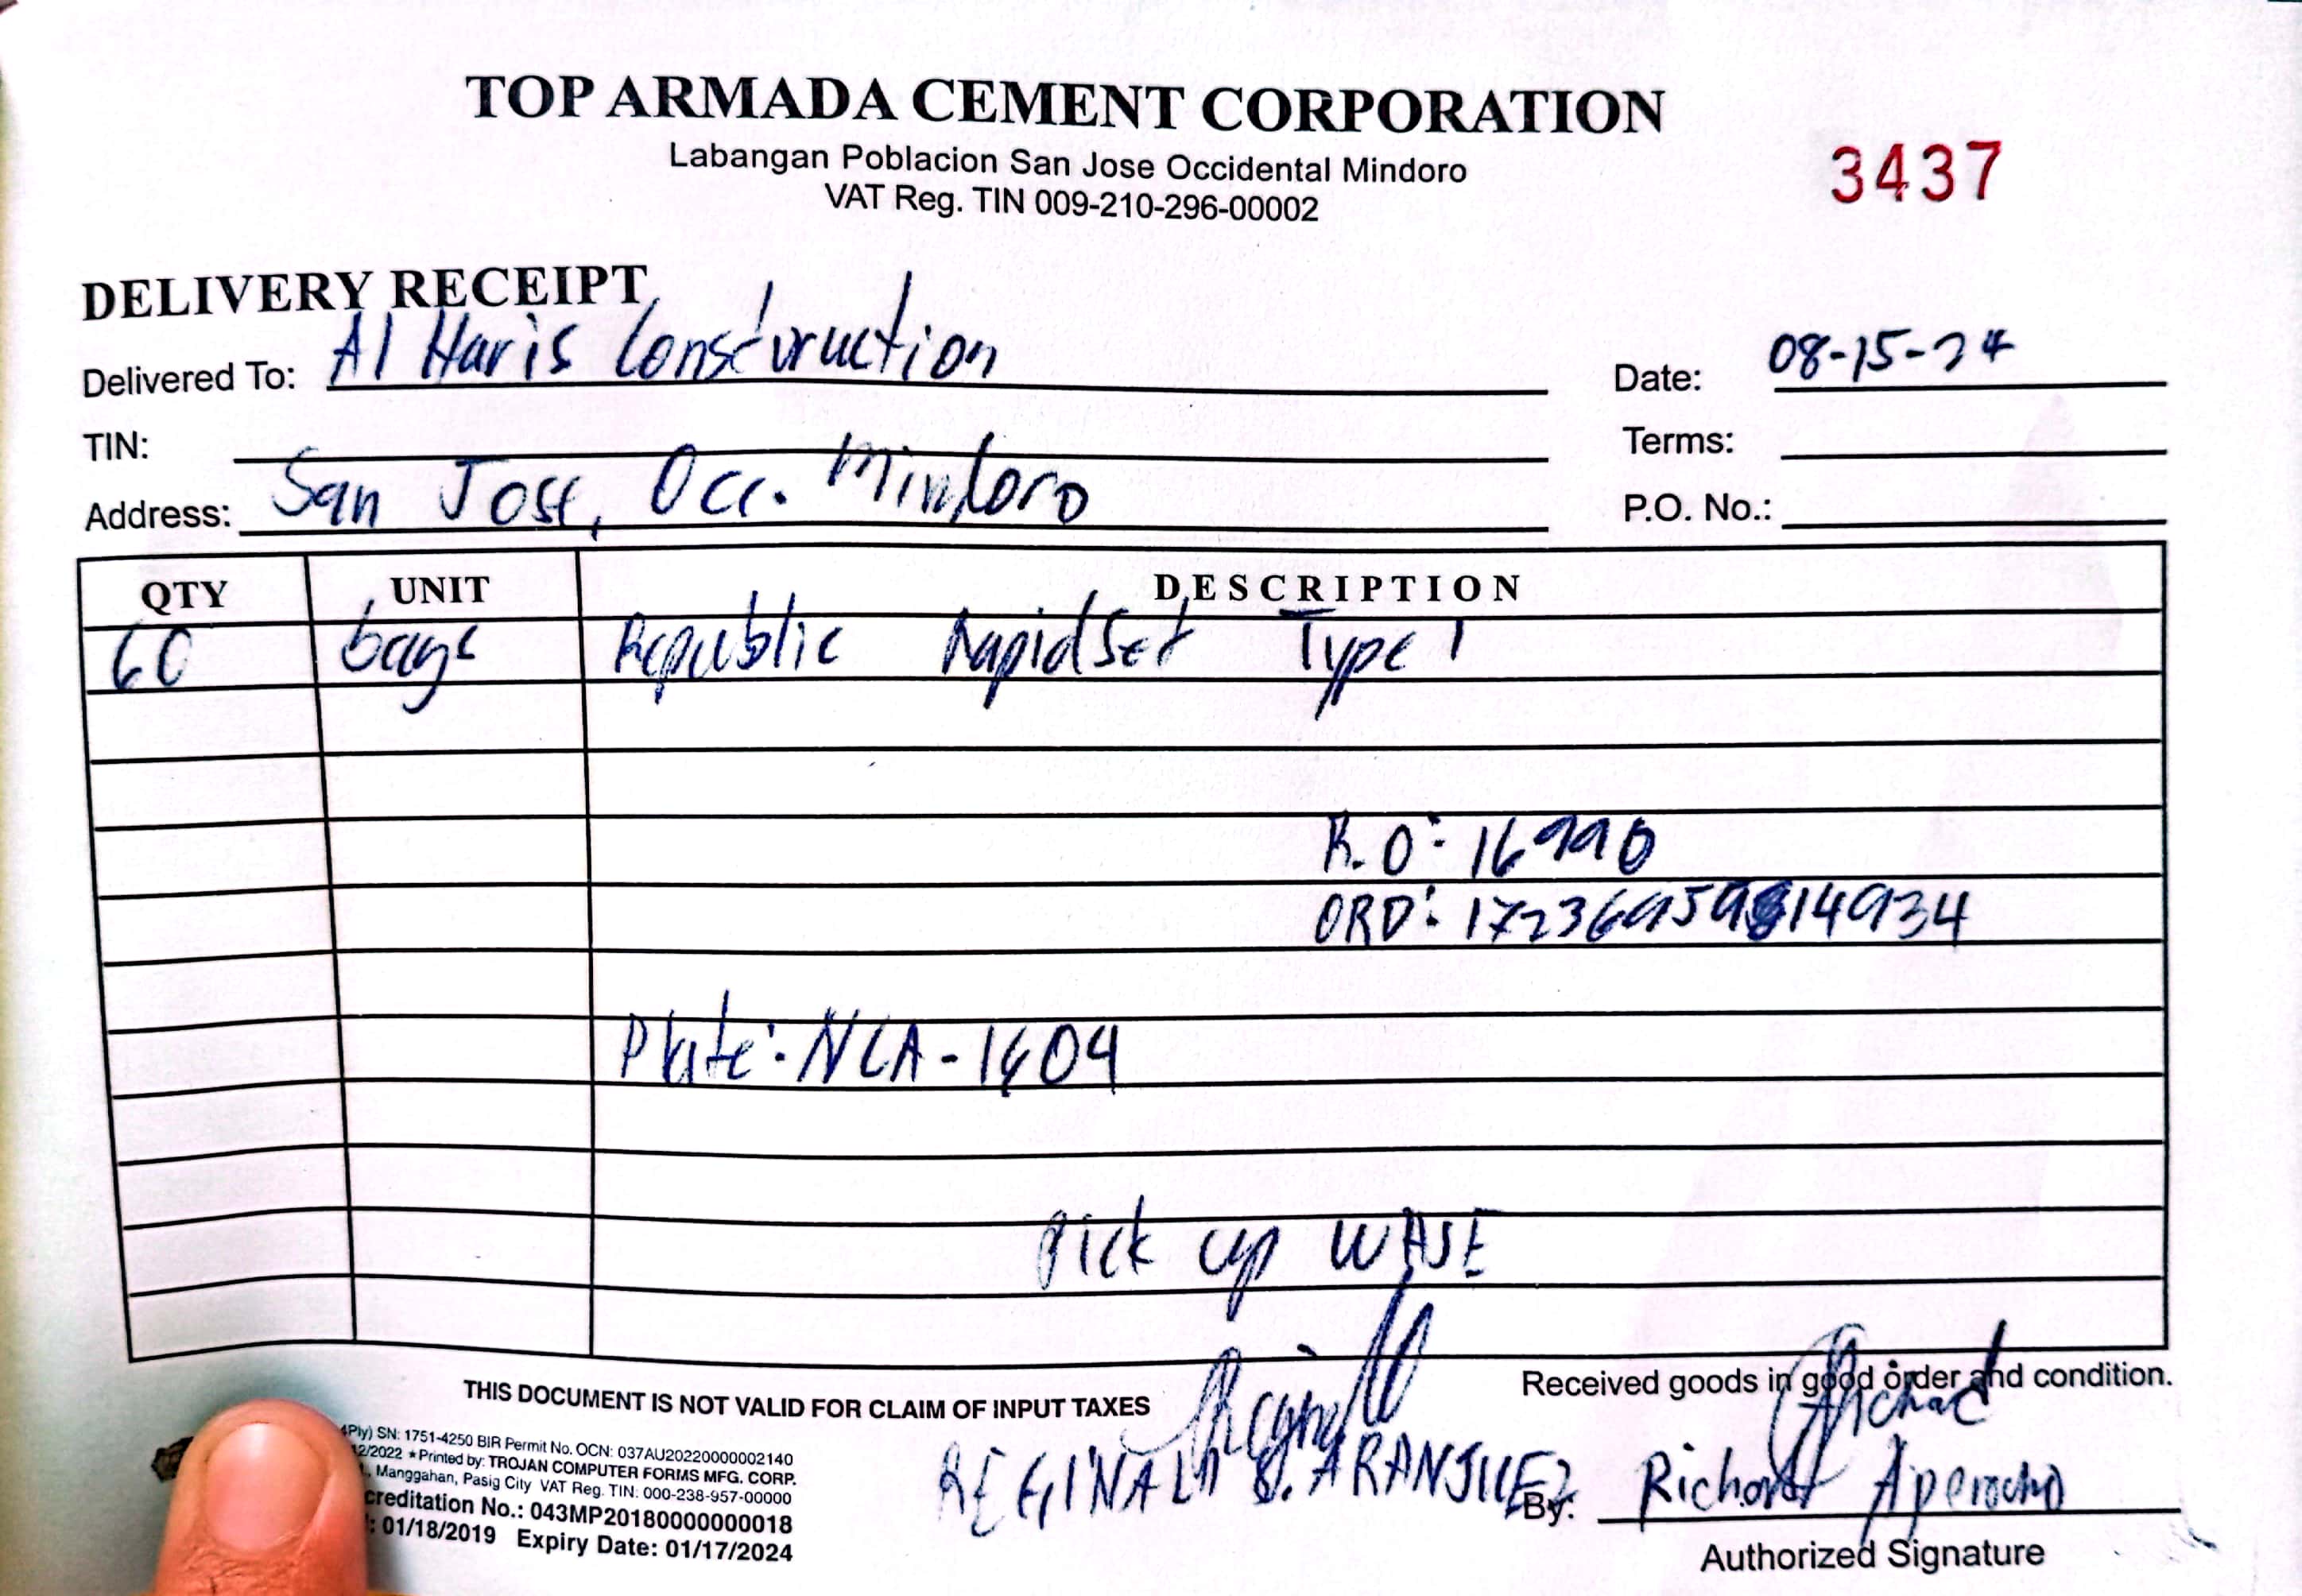 TOP ARMADA CEMENT CORPORATION
Labangan Poblacion San Jose Occidental Mindoro
VAT Reg. TIN 009-210-296-00002
3437
DELIVERY RECEIPT
Delivered To: Al Haris Construction
Date: 08-15-24
TIN:
Terms:
Address: San Jose, Occ. Mindoro
P.O. No.:
QTY UNIT DESCRIPTION
60 bags Republic Rapidset Type 1
R.O: 16990
ORD: 17236959814934
Plate: NCA-1604
Pick up WHSE
Received goods in good order and condition.
THIS DOCUMENT IS NOT VALID FOR CLAIM OF INPUT TAXES
4Ply) SN: 1751-4250 BIR Permit No. OCN: 037AU20220000002140
2/2022 ★Printed by: TROJAN COMPUTER FORMS MFG. CORP.
, Manggahan, Pasig City VAT Reg. TIN: 000-238-957-00000
creditation No.: 043MP20180000000018
: 01/18/2019 Expiry Date: 01/17/2024
REGINALD S. ARANJUEZ
By: Richard Aperocho
Authorized Signature